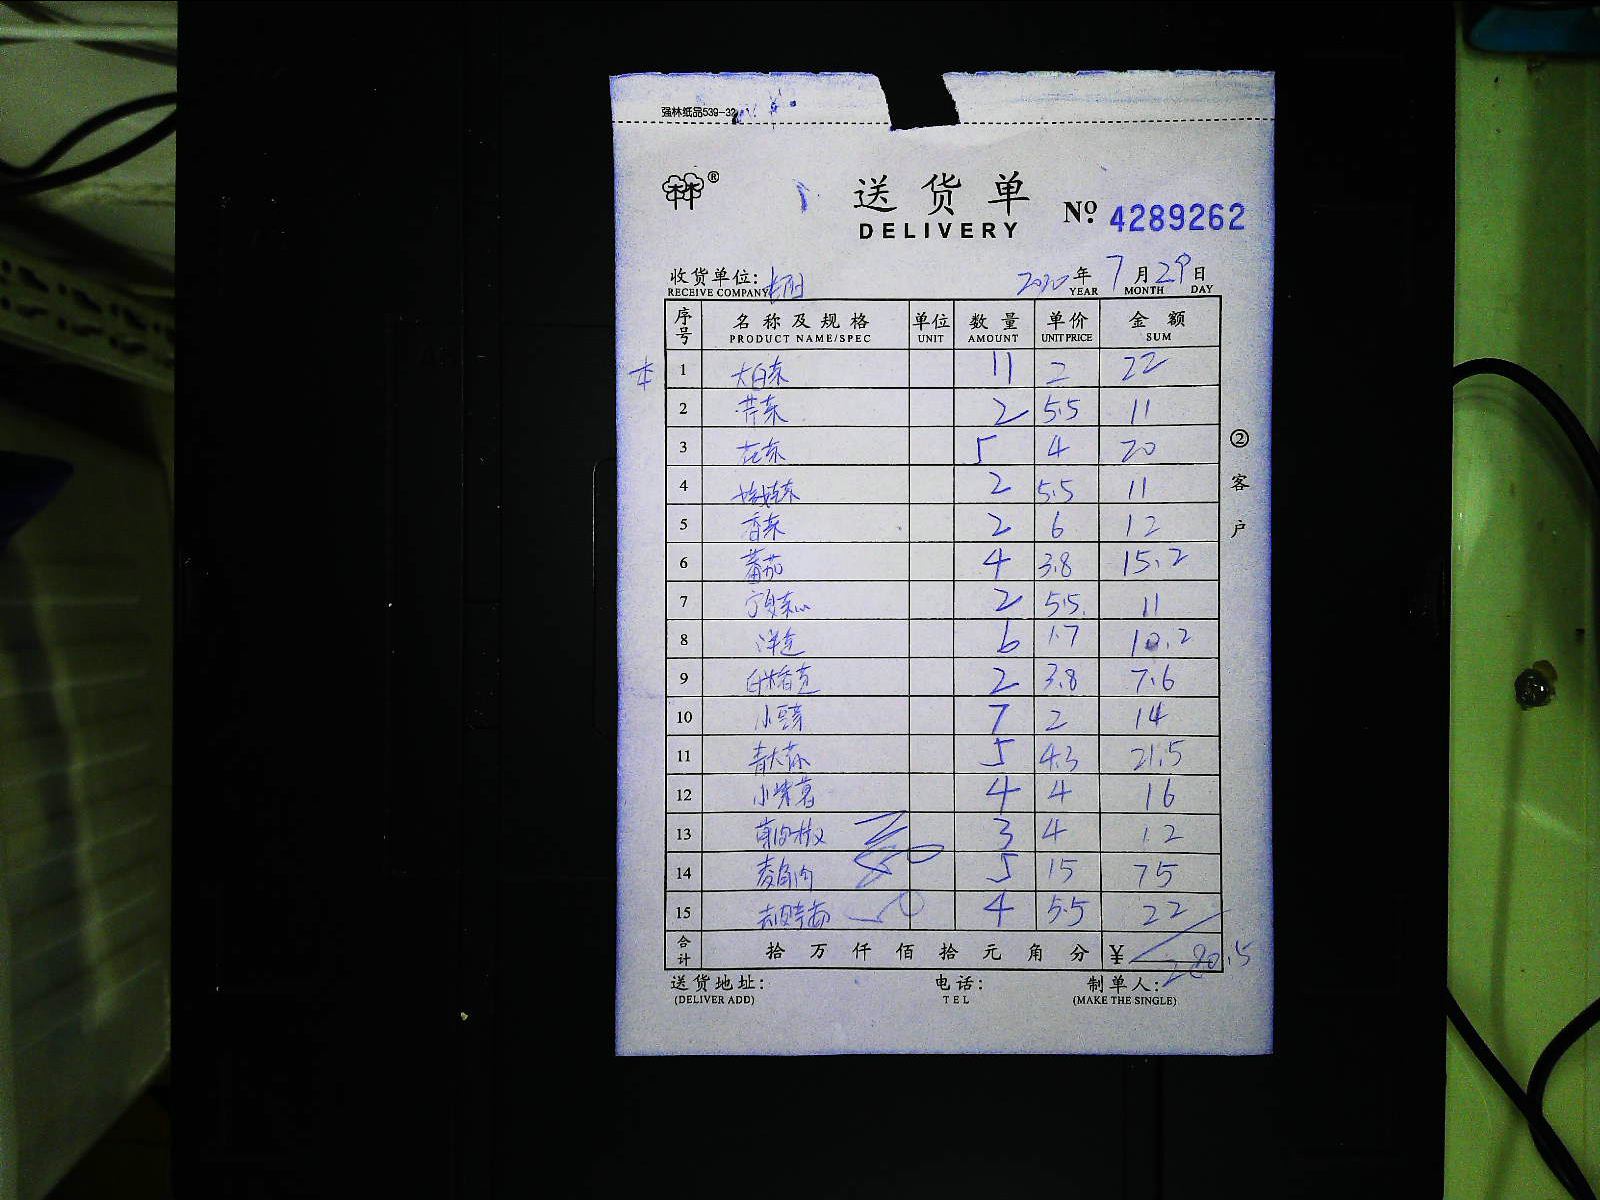 强林纸品539-32
®
送货单
DELIVERY
No 4289262
收货单位:
RECEIVE COMPANY
2020年7月29日
YEAR MONTH DAY
序号 名称及规格 单位 数量 单价 金额
PRODUCT NAME/SPEC UNIT AMOUNT UNIT PRICE SUM
1 大白菜 11 2 22
2 芹菜 2 5.5 11
3 花菜 5 4 20
4 2 5.5 11
5 香菜 2 6 12
6 蕃茄 4 3.8 15.2
7 宁夏菜心 2 5.5 11
8 洋仓 6 1.7 10.2
9 2 3.8 7.6
10 小豆芽 7 2 14
11 青大 5 4.3 21.5
12 小紫薯 4 4 16
13 3 4 12
14 5 15 75
15 4 5.5 22
合计 拾万仟佰拾元角分 ¥ 280.5
送货地址: 电话: 制单人:
(DELIVER ADD) TEL (MAKE THE SINGLE)
②客户